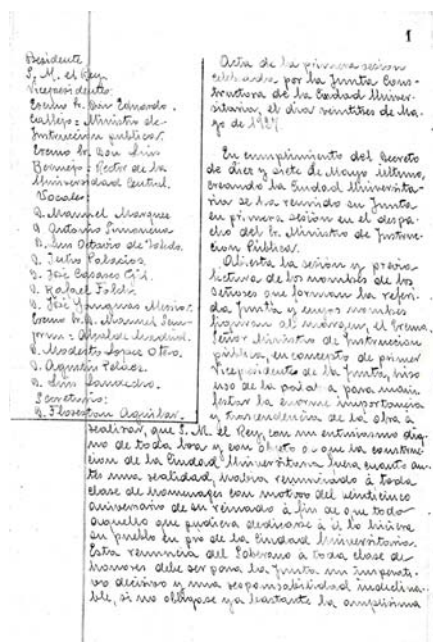 1
Presidente
S. M. el Rey.
Vicepresidentes:
Excmo Sr. Don Eduardo
Callejo = Ministro de
Instrucción pública.
Excmo Sr. Don Luis
Bermejo = Rector de la
Universidad Central.
Vocales
D. Manuel Marquez
D. Antonio Simonena
D. Luis Octavio de Toledo.
D. Julio Palacios.
D. José Casares Gil.
D. Rafael Folch.
D. José Yanguas Messia.
Excmo Sr. D. Manuel Sem-
prun = Alcalde Madrid.
D. Modesto Lopez Otero.
D. Agustin Pelaez.
D. Luis Landecho.
Secretario:
D. Florestan Aguilar.
Acta de la primera sesion
celebrada por la Junta Cons-
tructora de la Ciudad Univer-
sitaria, el dia veintitres de Ma-
yo de 1927.
En cumplimiento del Decreto
de diez y siete de Mayo ultimo,
creando la Ciudad Universita-
ria se ha reunido su Junta
en primera sesion en el despa-
cho del Sr. Ministro de Instruc-
cion Pública.
Abierta la sesion y previa
lectura de los nombres de los
señores que forman la referi-
da Junta y cuyos nombres
figuran al margen, el Excmo.
Señor Ministro de Instruccion
pública, en concepto de primer
Vicepresidente de la Junta, hizo
uso de la palabra para mani-
festar la enorme importancia
y trascendencia de la obra á
realizar, que S. M. el Rey, con un entusiasmo dig-
no de toda loa y con objeto de que la construc-
cion de la Ciudad Universitaria fuera cuanto an-
tes una realidad, habia renunciado á toda
clase de homenages con motivo del veinticinco
aniversario de su reinado á fin de que todo
aquello que pudiera dedicarse á él lo hiciera
su pueblo en pro de la Ciudad Universitaria.
Esta renuncia del Soberano á toda clase de
honores debe ser para la Junta un imperati-
vo decisivo y una responsabilidad ineludina-
ble, si no obligase ya bastante la amplisima